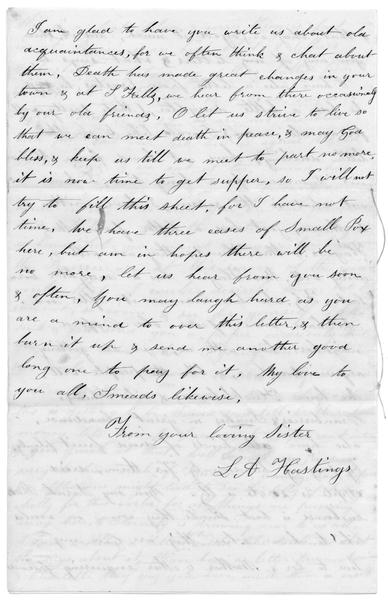 I am glad to have you write us about old
acquaintances, for we often think & chat about
them, Death has made great changes in your
town & at S Falls, we hear from there occasionaly
by our old friends, O let us strive to live so
that we can meet death in peace, & may God
bless, & keep us till we meet to part no more,
it is now time to get supper, so I will not
try to fill this sheet, for I have not
time, We have three cases of Small Pox
here, but am in hopes there will be
no more, let us hear from you soon
& often, You may laugh hard as you
are a mind to over this letter, & then
burn it up & send me another good
long one to pay for it, My love to
you all, Smeads likewise,
From your loving Sister
L A Hastings